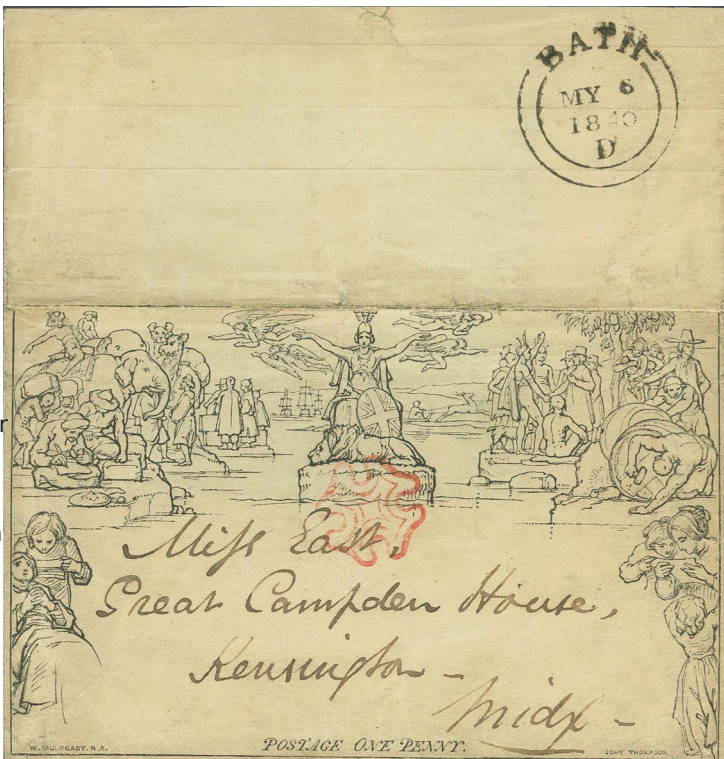 BATH
MY 6
1840
D
Miss East,
Great Campden House,
Kensington -
Midx -
W. MULREADY. R.A.
POSTAGE ONE PENNY.
JOHN THOMPSON.